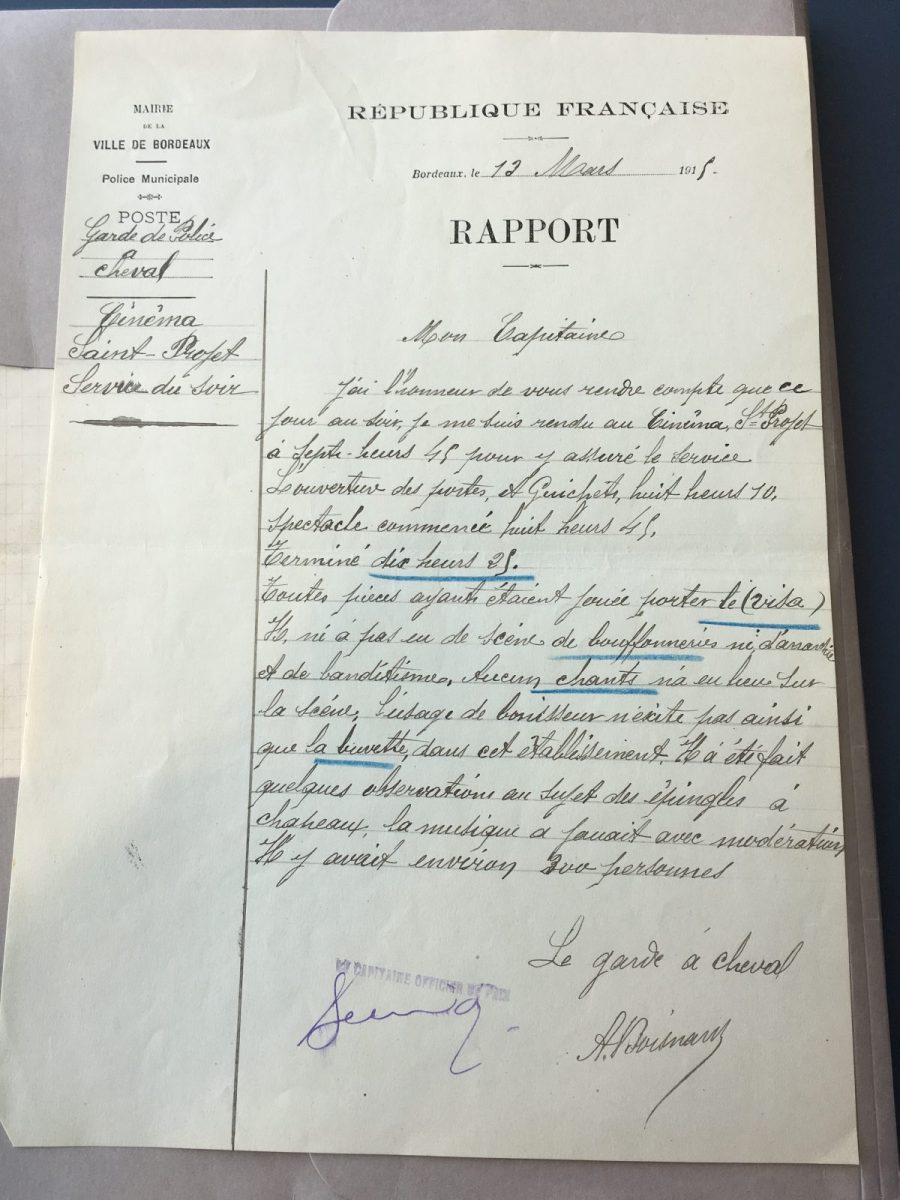 MAIRIE
DE LA
VILLE DE BORDEAUX
Police Municipale
POSTE
Garde de Police
a
cheval
Cinéma
Saint-Projet
Service du soir
RÉPUBLIQUE FRANÇAISE
Bordeaux, le 13 Mars 1915.
RAPPORT
Mon Capitaine
J'ai l'honneur de vous rendre compte que ce
jour au soir, je me suis rendu au Cinéma, St Projet
à Sept-heurs 45 pour y assuré le service
L'ouverture des portes, et Guichets, huit heurs 10.
Spectacle commencé huit heurs 45.
Terminé dix heurs 25.
Toutes pièces ayants étaient jouée porter le (visa)
Il, ni à pas eu de scène de bouffonneries ni,
et de banditisme, Aucun chants n'a eu lieu sur
la scéne, l'usage de bonisseur n'éxite pas ainsi
que la buvette, dans cet établissement. Il à été fait
quelques observations au sujet des épingles à
chapeaux, la musique a jouait avec modération
Il y avait environ 300 personnes
Le garde à cheval
A. Boisnard
CAPITAINE OFFICIER DE PAIX